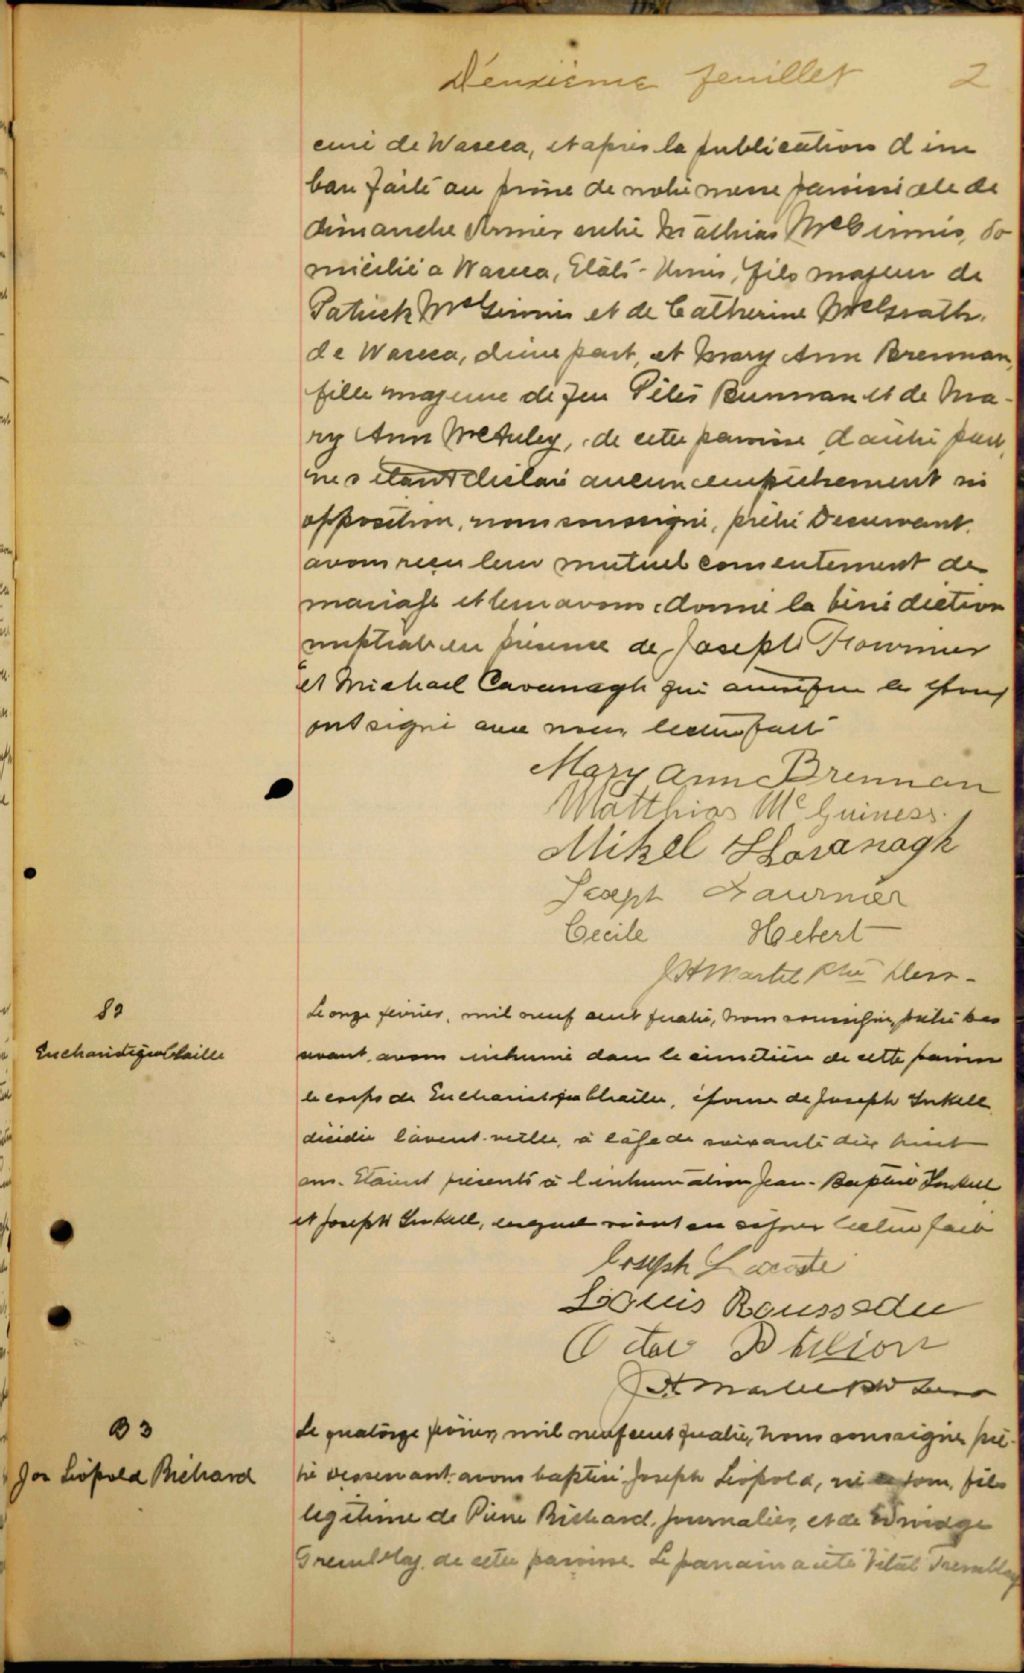 Deuxième feuillet 2
curé de Waseca, et après la publication d'un
ban faite au prône de notre messe paroissiale de
dimanche dernier entre Mathias McGinnis, do
micilié a Waseca, Etats-Unis, fils majeur de
Patrick McGinnis et de Catherine McGrath
de Waseca, d'une part, et Mary Ann Brennan,
fille majeure de feu Peter Brennan et de Ma-
ry Ann McAuley, de cette paroisse d'autre part,
ne s'étant déclaré aucun empêchement ni
opposition, nous soussigné, prêtre Desservant
avons reçu leur mutuel consentement de
mariage et leur avons donné la bénédiction
nuptiale en présence de Joseph Fournier
et Michael Cavanagh qui ainsi que les époux
ont signé avec nous, lecture faite
Mary Ann Brennan
Matthias McGuiness.
Mikel Kavanagh
Joseph Fournier
Cecile Hebert
J H Martel Ptre Dess-
S2
Le onze février, mil neuf cent quatre, nous soussigné, prêtre des
Eucharistique
servant, avons inhumé dans le cimetière de cette paroisse
le corps de Eucharistique, épouse de Joseph
décédée l'avant-veille, à l'âge de soixante dix huit
ans. Etaient présents à l'inhumation Jean-Baptiste
et Joseph, lesquels n'ont su signer lecture faite
Joseph Lacoste
Louis Rousseau
Octav
J H Martel Ptr Dess
B 3
Le quatorze février, mil neuf cent quatre, nous soussigné, prê-
Jos Léopold Richard
tre desservant avons baptisé Joseph Léopold, né, fils
légitime de Pierre Richard, journalier, et de Edwidge
Tremblay, de cette paroisse. Le parrain a été Vital Tremblay